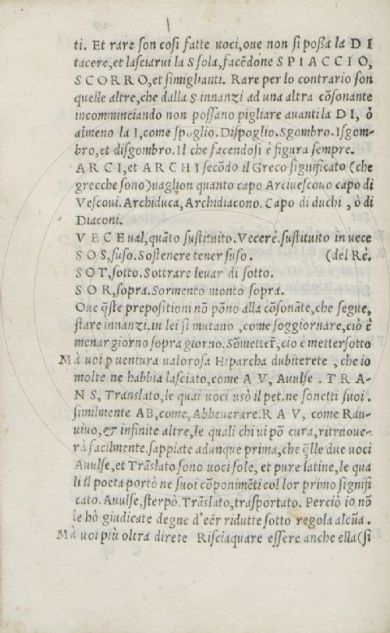 ti. Et rare son cosi fatte uoci, oue non si poßa la D I
tacere, et lasciarui la S sola, facẽdone S P I A C C I O,
S C O R R O, et simiglianti. Rare per lo contrario son
quelle altre, che dalla s innanzi ad una altra cõsonante
incomminciando non possano pigliare auanti la D I, ò
almeno la I, come spoglio. Dispoglio. Sgombro. Isgom-
bro, et disgombro. Il che facendosi è figura sempre.
A R C I, et A R C H I secõdo il Greco significato (che
grecche sono) uaglion quanto capo Arciuescouo capo di
Vescoui. Archiduca, Archidiacono. Capo di duchi, ò di
Diaconi.
V E C E ual, quãto sustituito. Vecerè. sustituito in uece
S O S, suso. Sostenere tener suso. (del Rè.
S O T, sotto. Sottrare leuar di sotto.
S O R, sopra. Sormento monto sopra.
Oue q̃ste prepositioni nõ põno alla cõsonãte, che segue,
stare innanzi. in lei si mutano, come soggiornare, ciò è
menar giorno sopra giorno. Sõmetter̃, ciò è metter sotto
Mà uoi p uentura ualorosa Hiparcha dubiterete, che io
molte ne habbia lasciato, come A V, Auulse. T R A-
N S, Translato, le quai uoci usò il pet. ne sonetti suoi.
similmente AB, come, Abbeuerare. R A V, come Rau-
uiuo, & infinite altre, le quali chi ui põ cura, ritroue-
rà facilmente. sappiate adunque prima, che q̃lle due uoci
Auulse, et Trãslato sono uoci sole, et pure latine, le qua
li il poeta portò ne suoi cõponimẽti col lor primo signifi
cato. Auulse, sterpò. Trãslato, trasportato. Perciò io nõ
le hò giudicate degne d'eẽr ridutte sotto regola alcũa.
Mà uoi più oltra direte Risciaquare essere anche ella (si